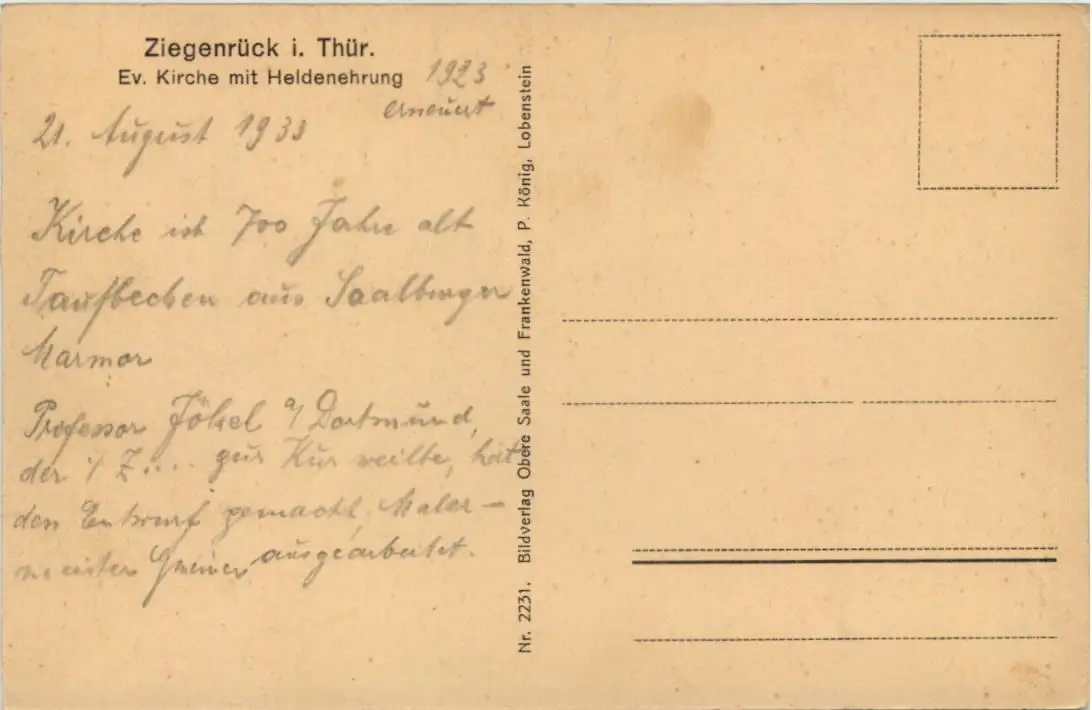 Ziegenrück i. Thür.
Ev. Kirche mit Heldenehrung 1923
erneuert
21. August 1933
Kirche ist 700 Jahre alt
Taufbecken aus Saalburger
Marmor
Professor a/ Dortmund,
der i/ Z.... zur Kur weilte, hat
den Entwurf gemacht, Maler-
meister ausgearbeitet.
Nr. 2231. Bildverlag Obere Saale und Frankenwald, P. König, Lobenstein